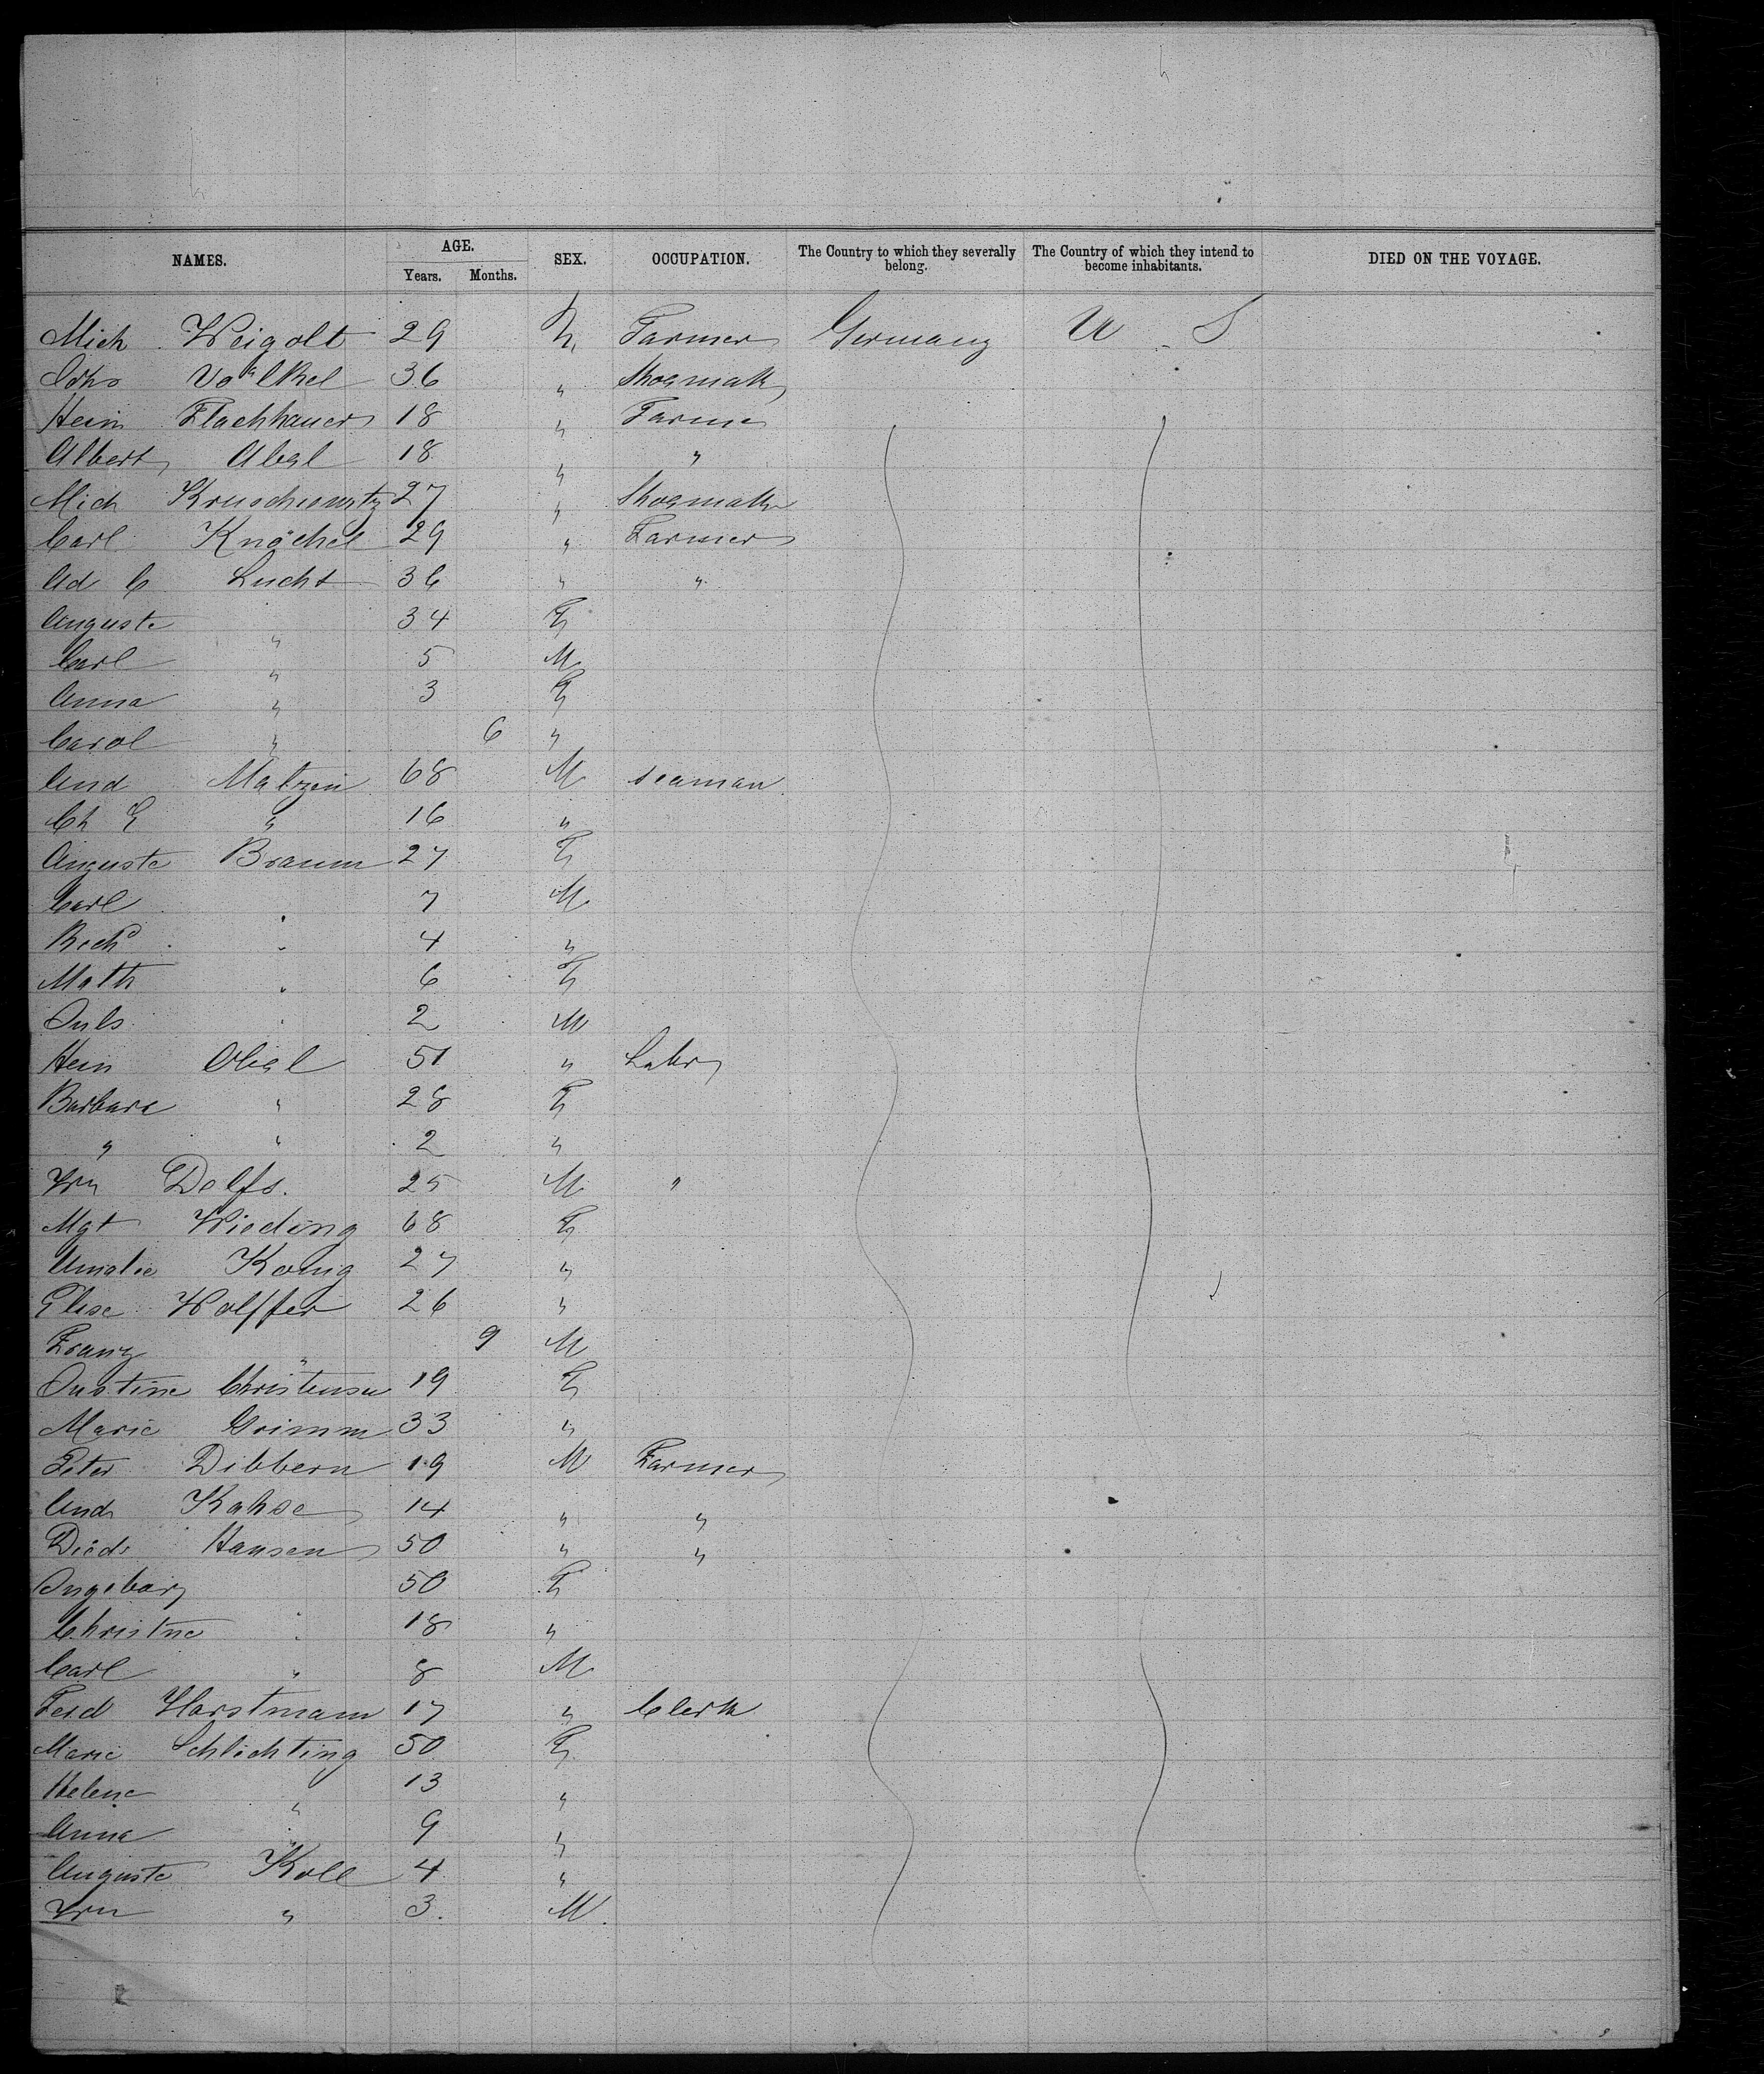 NAMES. AGE. Years. Months. SEX. OCCUPATION. The Country to which they severally belong. The Country of which they intend to become inhabitants. DIED ON THE VOYAGE.
Mich Weigolt 29 M Farmer Germany U S
Völkel 36 " Shoemak
Hein Flachhauer 18 " Farmer
Albert Abel 18 " "
Mich Kruschewitz 27 " Shoemak
Carl Knöchel 29 " Farmer
Ad C Lucht 36 " "
Auguste " 34 F
Carl " 5 M
Anna " 3 F
Carol " 6 "
And Matzen 68 M seaman
Ch E " 16 "
Auguste Braum 27 F
Carl " 7 M
Rich " 4 "
Math " 6 F
Juls " 2 M
Hein 51 " Labr
Barbara " 28 F
" " 2 "
Wm Delfs. 25 M "
Mgt Wieding 68 F
Amalie Konig 27 "
Elise Wolffer 26 "
Franz " 9 M
Justine Christensen 19 F
Marie Grimm 33 "
Peter Dibbern 19 M Farmer
And Kahse 14 " "
Died Hansen 50 " "
Ingeborg 50 F
Christne " 18 "
Carl " 8 M
Ferd Horstmann 17 " Clerk
Marie Schlichting 50 F
Helene " 13 "
Anna " 9 "
Auguste Koll 4 "
Wm " 3. M.